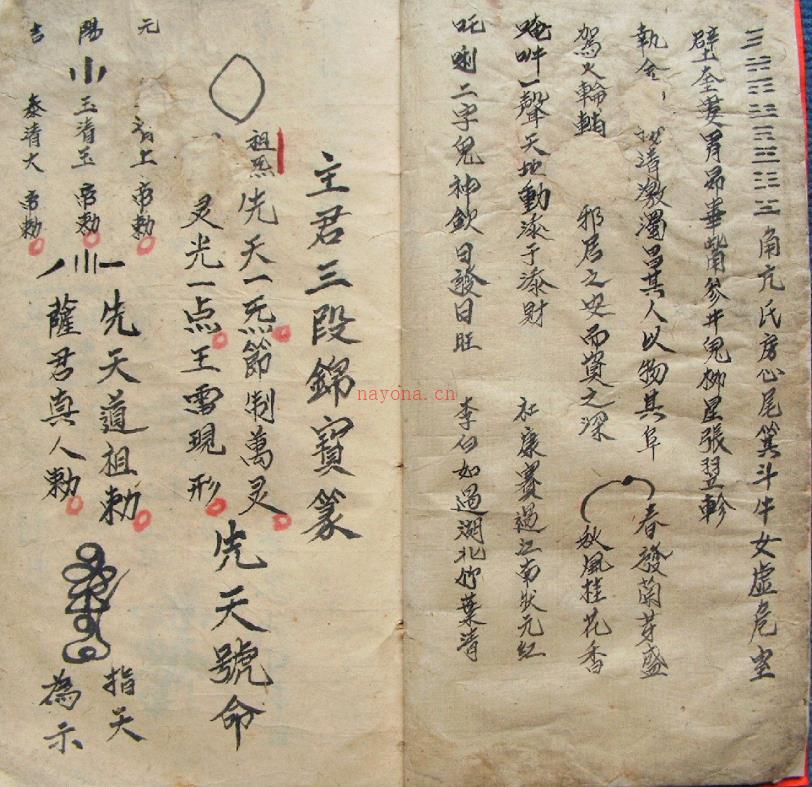 ☰☵☶☳☴☲☷☱角亢氏房心尾箕斗牛女虚危室
壁奎娄胃昴畢觜參井鬼柳星張翌軫
執金 清激濁昌其人以物其阜 春發蘭芽盛
駕火輪輔 邪居之安而資之深 秋風桂花香
唵吽一聲天地動添子添財 杜康賽過江南狀元紅
吒唎二字鬼神欽日發日旺 李白如過湖北竹葉清
主君三段錦寳篆
祖炁 先天一炁節制萬灵
灵光一点王灵現形
先天號命
元 清上帝勅
陽 玉清玉帝勅
吉 泰清大帝勅
先天道祖勅
薩君真人勅
指天
為示
nayona.cn